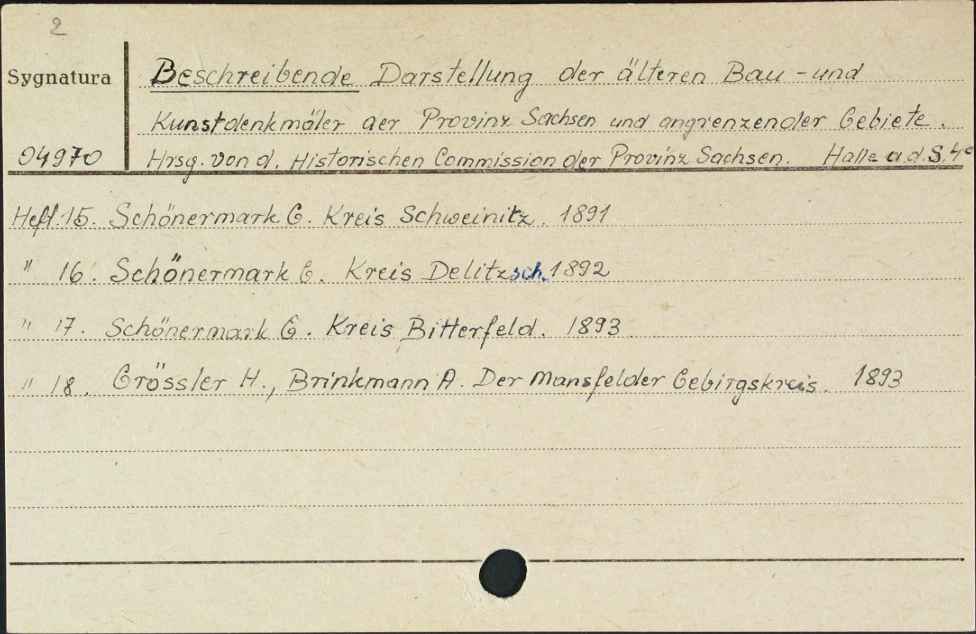 2
Sygnatura
Beschreibende Darstellung der älteren Bau- und
Kunstdenkmäler der Provinz Sachsen und angrenzender Gebiete.
04970
Hrsg. von d. Historischen Commission der Provinz Sachsen. Halle a.d.S. 4°
Heft. 15. Schönermark G. Kreis Schweinitz. 1891
" 16. Schönermark G. Kreis Delitzsch. 1892
" 17. Schönermark G. Kreis Bitterfeld. 1893
" 18. Grössler H., Brinkmann A. Der Mansfelder Gebirgskreis. 1893